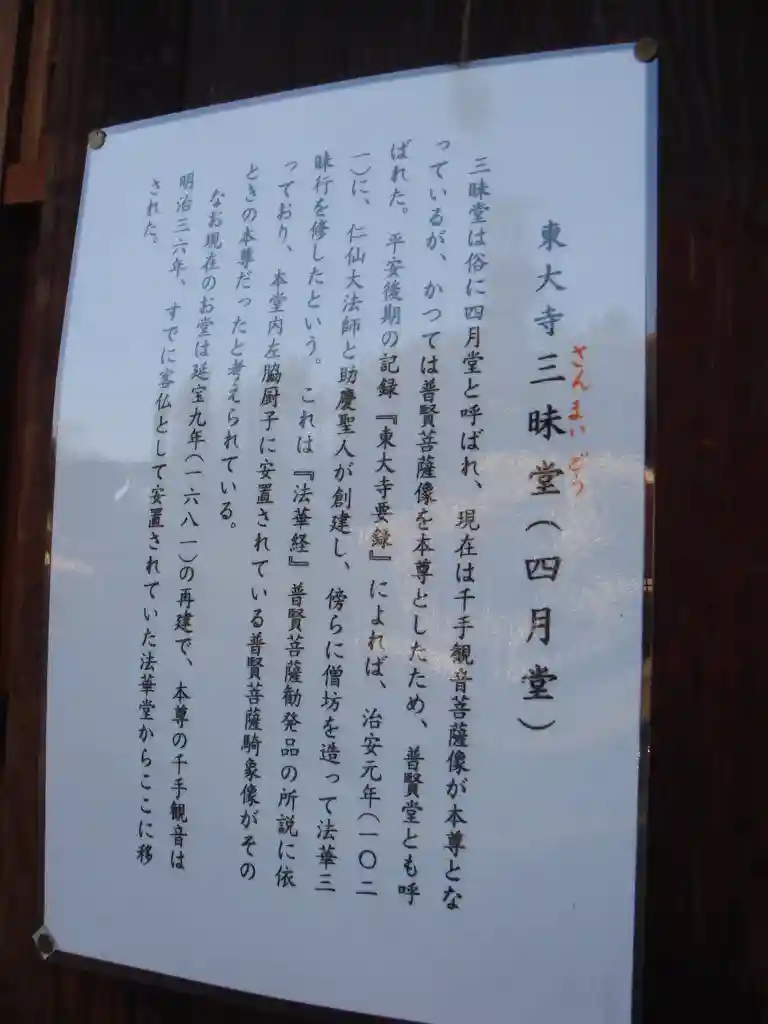 東大寺三昧堂（四月堂）
さんまいどう
三昧堂は俗に四月堂と呼ばれ、現在は千手観音菩薩像が本尊とな
っているが、かつては普賢菩薩像を本尊としたため、普賢堂とも呼
ばれた。平安後期の記録『東大寺要録』によれば、治安元年（一〇二
一）に、仁仙大法師と助慶聖人が創建し、傍らに僧坊を造って法華三
昧行を修したという。これは『法華経』普賢菩薩勧発品の所説に依
っており、本堂内左脇厨子に安置されている普賢菩薩騎象像がその
ときの本尊だったと考えられている。
なお現在のお堂は延宝九年（一六八一）の再建で、本尊の千手観音は
明治三六年、すでに客仏として安置されていた法華堂からここに移
された。